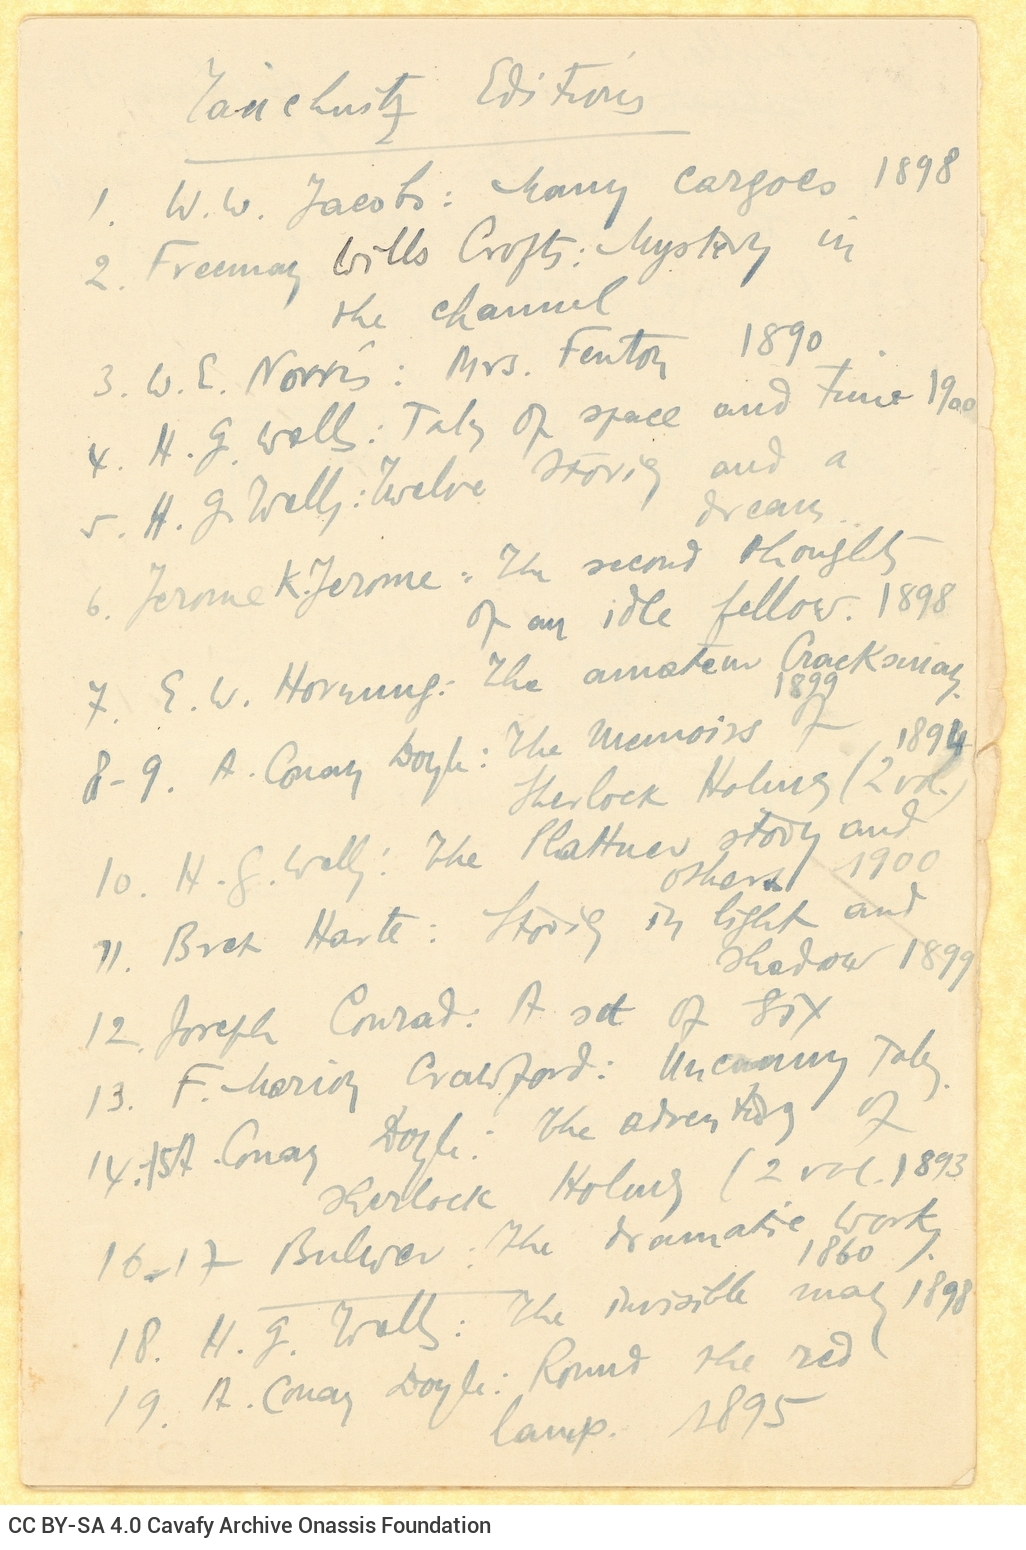 Tauchnitz Editions
1. W. W. Jacobs: Many cargoes 1898
2. Freeman Wills Crofts: Mystery in
the channel
3. W. E. Norris: Mrs. Fenton 1890
4. H. G. Wells: Tales of space and Time 1900
5. H. G. Wells: Twelve stories and a
dream..
6. Jerome K. Jerome: The second thoughts
of an idle fellow. 1898
7. E. W. Hornung: The amateur Cracksman.
1899
8-9. A. Conan Doyle: The Memoirs of 1894
Sherlock Holmes (2 vol.)
10. H. G. Wells: The Plattner story and
others 1900
11. Bret Harte: Stories in light and
shadow 1899
12. Joseph Conrad: A set of six
13. F. Marion Crawford: Uncanny Tales.
14.-15 A. Conan Doyle: The adventures of
Sherlock Holmes (2 vol.) 1893
16-17 Bulwer: The dramatic works.
1860
18. H. G. Wells: The invisible man 1898
19. A. Conan Doyle: Round the red
lamp. 1895
CC BY-SA 4.0 Cavafy Archive Onassis Foundation